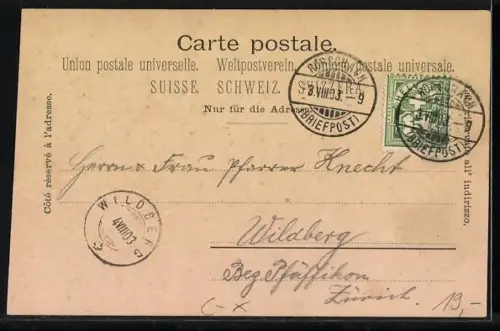 Carte postale.
Union postale universelle. Weltpostverein. Unione postale universale.
SUISSE. SCHWEIZ. SVIZZERA.
Nur für die Adresse
Côté réservé à l'adresse.
all' indirizzo.
RORSCHACH
3.VIII.03.–9
(BRIEFPOST)
RORSCHACH
3.VIII.03.–9
(BRIEFPOST)
Herrn & Frau Pfarrer Knecht
WILDBERG
4.VIII.03
Wildberg
Bez. Pfäffikon
Zürich.
C-x
19,-